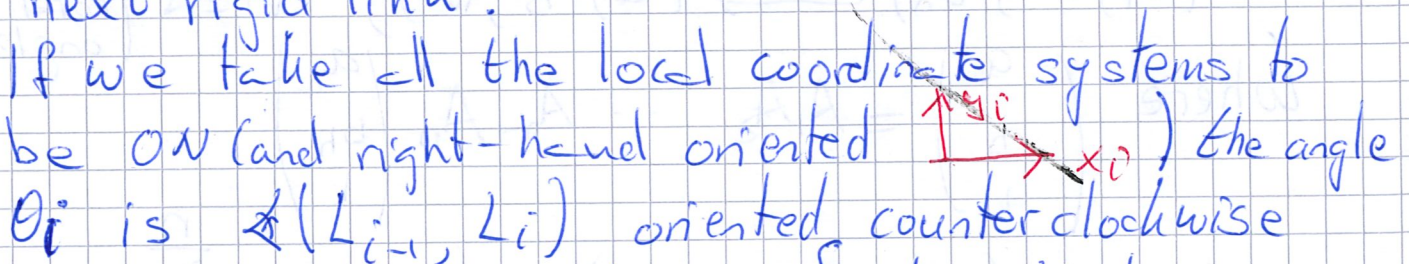 next rigid link.
If we take all the local coordinate systems to
be ON (and right-hand oriented yi xi) the angle
θi is ∡(Li-1, Li) oriented counterclockwise